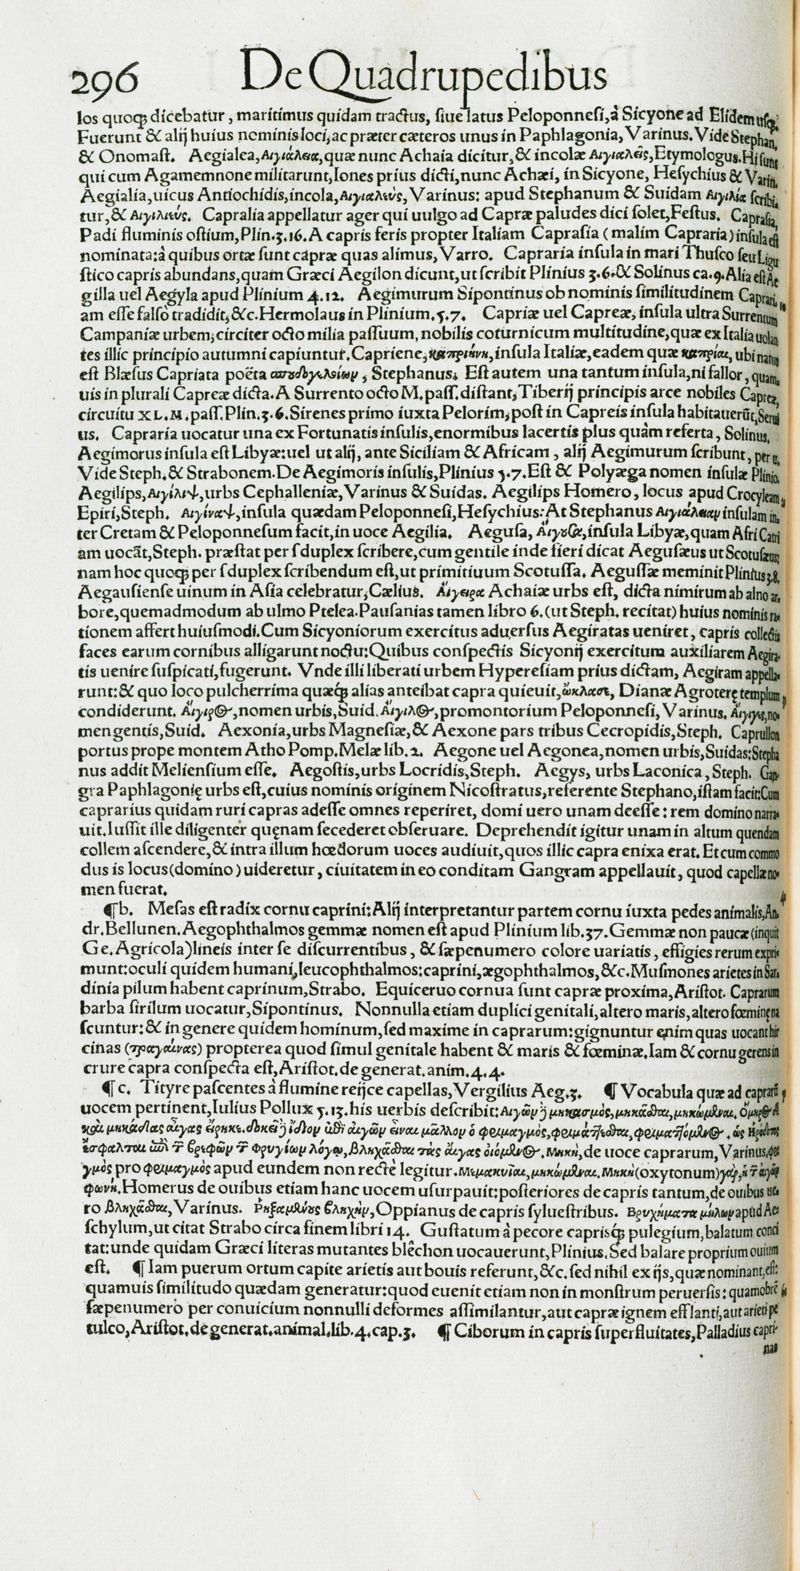 296 De Quadrupedibus
los quoq; dicebatur, maritimus quidam tractus, siue latus Peloponnesi, à Sicyone ad Elidem usq;.
Fuerunt & alij huius nominis loci, ac præter cæteros unus in Paphlagonia, Varinus. Vide Stephan.
& Onomast. Aegialea, Αἰγιάλεια, quæ nunc Achaia dicitur, & incolæ Αἰγιαλεῖς, Etymologus. Hi sunt
qui cum Agamemnone militarunt, Iones prius dicti, nunc Achæi, in Sicyone, Hesychius & Varin.
Aegialia, uicus Antiochidis, incola, Αἰγιαλεὺς, Varinus: apud Stephanum & Suidam Αἰγιλία scribi
tur, & Αἰγιλιεύς. Capralia appellatur ager qui uulgo ad Capræ paludes dici solet, Festus. Caprasia,
Padi fluminis ostium, Plin. 3. 16. A capris feris propter Italiam Caprasia (malim Capraria) insula est
nominata: à quibus ortæ sunt capræ quas alimus, Varro. Capraria insula in mari Thusco seu Ligu
stico capris abundans, quam Græci Aegilon dicunt, ut scribit Plinius 3. 6. & Solinus ca. 9. Alia est Ae
gilla uel Aegyla apud Plinium 4. 12. Aegimurum Sipontinus ob nominis similitudinem Caprari,
am esse falso tradidit, &c. Hermolaus in Plinium. 5. 7. Capriæ uel Capreæ, insula ultra Surrentum
Campaniæ urbem, circiter octo milia passuum, nobilis coturnicum multitudine, quæ ex Italia uolan
tes illic principio autumni capiuntur. Capriene, καπριήνη, insula Italiæ, eadem quæ καπρίαι, ubi natus
est Blæsus Capriata poëta, Stephanus. Est autem una tantum insula, ni fallor, quam,
uis in plurali Capreæ dicta. A Surrento octo M. pass. distant, Tiberij principis arce nobiles Capreæ,
circuitu XL. M. pass. Plin. 3. 6. Sirenes primo iuxta Pelorim, post in Capreis insula habitauerūt, Serui
us. Capraria uocatur una ex Fortunatis insulis, enormibus lacertis plus quàm referta, Solinus.
Aegimorus insula est Libyæ: uel ut alij, ante Siciliam & Africam, alij Aegimurum scribunt, per u.
Vide Steph. & Strabonem. De Aegimoris insulis, Plinius 5. 7. Est & Polyæga nomen insulæ Plinio.
Aegilips, Αἰγίλιψ, urbs Cephalleniæ, Varinus & Suidas. Aegilips Homero, locus apud Crocyleam
Epiri, Steph. Αἰγίναψ, insula quædam Peloponnesi, Hesychius: At Stephanus Αἰγιάλειαν insulam in,
ter Cretam & Peloponnesum facit, in uoce Aegilia. Aegusa, Αἰγοῦσα, insula Libyæ, quam Afri Catri
am uocāt, Steph. præstat per s duplex scribere, cum gentile inde fieri dicat Aegusæus ut Scotusæus:
nam hoc quoq; per s duplex scribendum est, ut primitiuum Scotussa. Aegussæ meminit Plinius 3. 8.
Aegausiense uinum in Asia celebratur, Cælius. Αἴγειρα Achaiæ urbs est, dicta nimirum ab alno ar,
bore, quemadmodum ab ulmo Ptelea. Pausanias tamen libro 6. (ut Steph. recitat) huius nominis ra
tionem affert huiusmodi. Cum Sicyoniorum exercitus aduersus Aegiratas ueniret, capris collectis
faces earum cornibus alligarunt noctu: Quibus conspectis Sicyonij exercitum auxiliarem Aegira,
tis uenire suspicati, fugerunt. Vnde illi liberati urbem Hyperesiam prius dictam, Aegiram appella,
runt: & quo loco pulcherrima quæq; alias anteibat capra quieuit, ὤκλασε, Dianæ Agroterę templum
condiderunt. Αἴγιρος, nomen urbis, Suid. Αἴγιλος, promontorium Peloponnesi, Varinus. Αἴγιγες, no,
men gentis, Suid. Aexonia, urbs Magnesiæ, & Aexone pars tribus Cecropidis, Steph. Caprullon
portus prope montem Atho Pomp. Melæ lib. 2. Aegone uel Aegonea, nomen urbis, Suidas: Stepha
nus addit Meliensium esse. Aegostis, urbs Locridis, Steph. Aegys, urbs Laconica, Steph. Gan,
gra Paphlagonię urbs est, cuius nominis originem Nicostratus, referente Stephano, istam facit: Cum
caprarius quidam ruri capras adesse omnes reperiret, domi uero unam deesse: rem domino narra,
uit. Iussit ille diligenter quęnam secederet obseruare. Deprehendit igitur unam in altum quendam
collem ascendere, & intra illum hœdorum uoces audiuit, quos illic capra enixa erat. Et cum commo
dus is locus (domino) uideretur, ciuitatem in eo conditam Gangram appellauit, quod capellæ no,
men fuerat.
¶ b. Mesas est radix cornu caprini: Alij interpretantur partem cornu iuxta pedes animalis, An,
dr. Bellunen. Aegophthalmos gemmæ nomen est apud Plinium lib. 37. Gemmæ non paucæ (inquit
Ge. Agricola) lineis inter se discurrentibus, & sæpenumero colore uariatis, effigies rerum expri
munt: oculi quidem humani, leucophthalmos: caprini, ægophthalmos, &c. Musmones arietes in Sar,
dinia pilum habent caprinum, Strabo. Equiceruo cornua sunt capræ proxima, Aristot. Caprarum
barba sirilum uocatur, Sipontinus. Nonnulla etiam duplici genitali, altero maris, altero fœminę na
scuntur: & in genere quidem hominum, sed maxime in caprarum: gignuntur enim quas uocant hir
cinas (τραγαίνας) propterea quod simul genitale habent & maris & fœminæ. Iam & cornu gerens in
crure capra conspecta est, Aristot. de generat. anim. 4. 4.
¶ c. Tityre pascentes à flumine reijce capellas, Vergilius Aeg. 3. ¶ Vocabula quæ ad caprarū
uocem pertinent, Iulius Pollux 5. 13. his uerbis describit: Αἰγῶν δὲ μηκασμός, μηκᾶσθαι, μηκώμεναι. Ὅμηρος δὲ
καὶ μηκάδας αἶγας εἴρηκε. δοκεῖ δὲ ἴδιον ἐπὶ αἰγῶν εἶναι μᾶλλον ὁ φριμαγμός, φριμάττεσθαι, φριματτόμενος. ὡς
βληχᾶσθαι τὰς αἶγας οἰόμενος. Μηκὴ, de uoce caprarum, Varinus, φρι
γμός pro φριμαγμός apud eundem non rectè legitur. Μεμακυῖαι, μηκώμεναι. Μηκὴ (oxytonum) γάρ, ἡ τῶν αἰγῶν
φωνή. Homerus de ouibus etiam hanc uocem usurpauit: posteriores de capris tantum, de ouibus ue,
ro βληχᾶσθαι, Varinus. Ῥηξαμένης βληχὴν, Oppianus de capris syluestribus. Βρυχήματα μήλων apud Ae,
schylum, ut citat Strabo circa finem libri 14. Gustatum à pecore caprisq; pulegium, balatum conci
tat: unde quidam Græci literas mutantes blêchon uocauerunt, Plinius. Sed balare proprium ouium
est. ¶ Iam puerum ortum capite arietis aut bouis referunt, &c. sed nihil ex ijs, quæ nominant, est:
quamuis similitudo quædam generatur: quod euenit etiam non in monstrum peruersis: quamobrē
sæpenumero per conuicium nonnulli deformes assimilantur, aut capræ ignem efflanti, aut arieti pe
tulco, Aristot. de generat. animal. lib. 4. cap. 3. ¶ Ciborum in capris superfluitates, Palladius capri-
nas